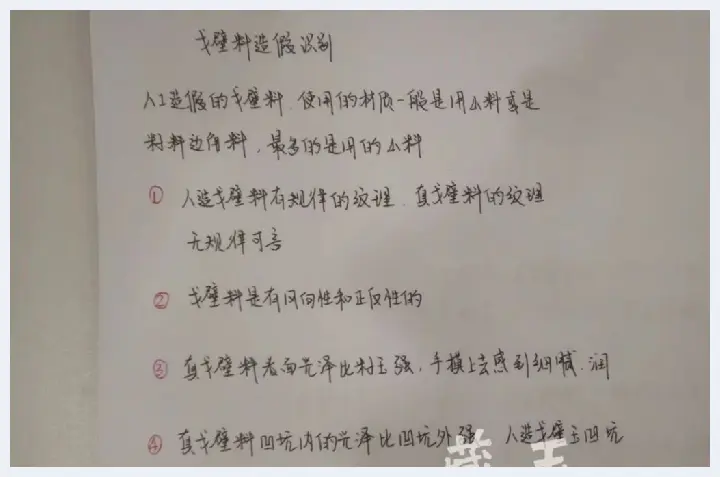 戈壁料造假识别
人工造假的戈壁料、使用的材质一般是用山料或是
籽料边角料，最多的是用的山料
① 人造戈壁料有规律的纹理、真戈壁料的纹理
无规律可言
② 戈壁料是有风向性和正反性的
③ 真戈壁料表面光泽比籽玉强，手摸上去感到细腻、润
④ 真戈壁料凹坑内的光泽比凹坑外强 人造戈壁玉凹坑